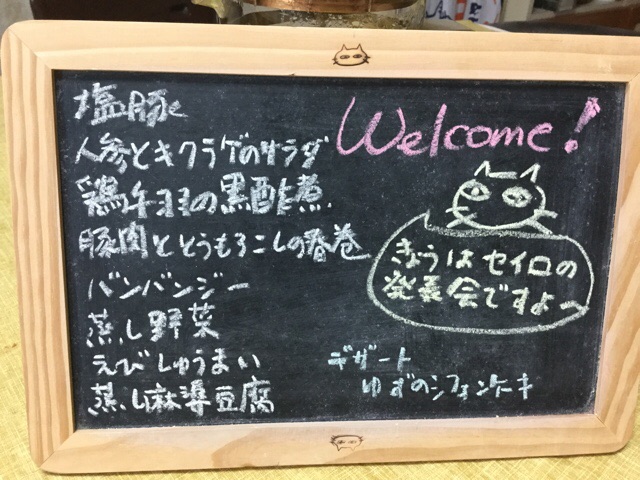 塩豚と
人参とキクラゲのサラダ
鶏手羽の黒酢煮
豚肉ととうもろこしの春巻
バンバンジー
蒸し野菜
えびしゅうまい
蒸し麻婆豆腐
Welcome!
きょうはセイロの
発表会ですよー
デザート
ゆずのシフォンケーキ